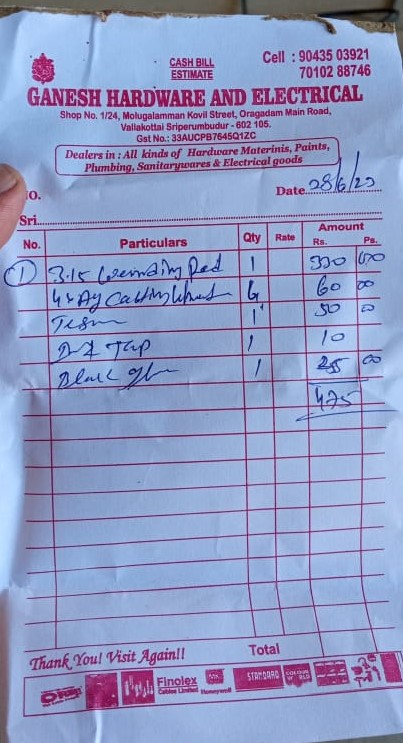 CASH BILL
ESTIMATE
Cell : 90435 03921
70102 88746
GANESH HARDWARE AND ELECTRICAL
Shop No. 1/24, Molugalamman Kovil Street, Oragadam Main Road,
Vallakottai Sriperumbudur - 602 105.
Gst No.: 33AUCPB7645Q1ZC
Dealers in : All kinds of Hardware Materinis, Paints,
Plumbing, Sanitarywares & Electrical goods
Date 28/6/23
Sri
No. Particulars Qty Rate Amount
Rs. Ps.
1 3.15 Rod 1 330 00
4" Ag Cutting 4 60 00
1 50 00
Tap 1 10
Black 1 25 00
475
Thank You! Visit Again!! Total
Finolex
Cables Limited
Honeywell
STANDARD